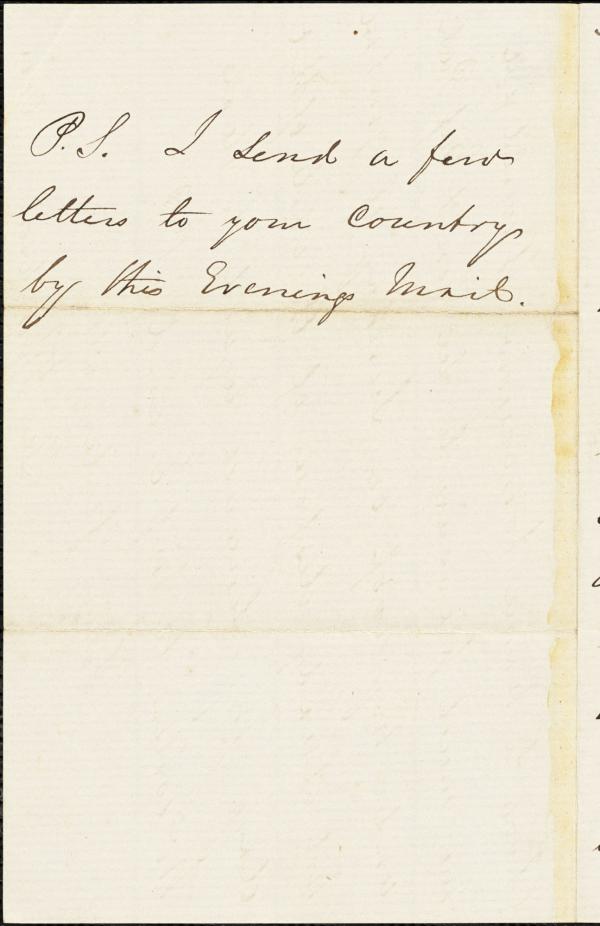 P.S. I send a few
letters to your Country
by this Evenings Mail.